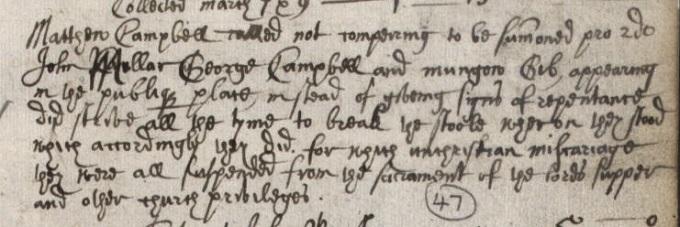 Collected march 7 x 9
Matthew Campbell called not compeiring to be sumoned pro 2do
John Mullar George Campbell and mungow Gib, appearing
in the publiq place, in stead of giveing signs of repentance
did strive all the tyme to break the stoole wheron they stood
which accordingly they did. for which unchristian miscariage
they were all suspended from the sacrament of the lords supper
and other church priviledges.
47